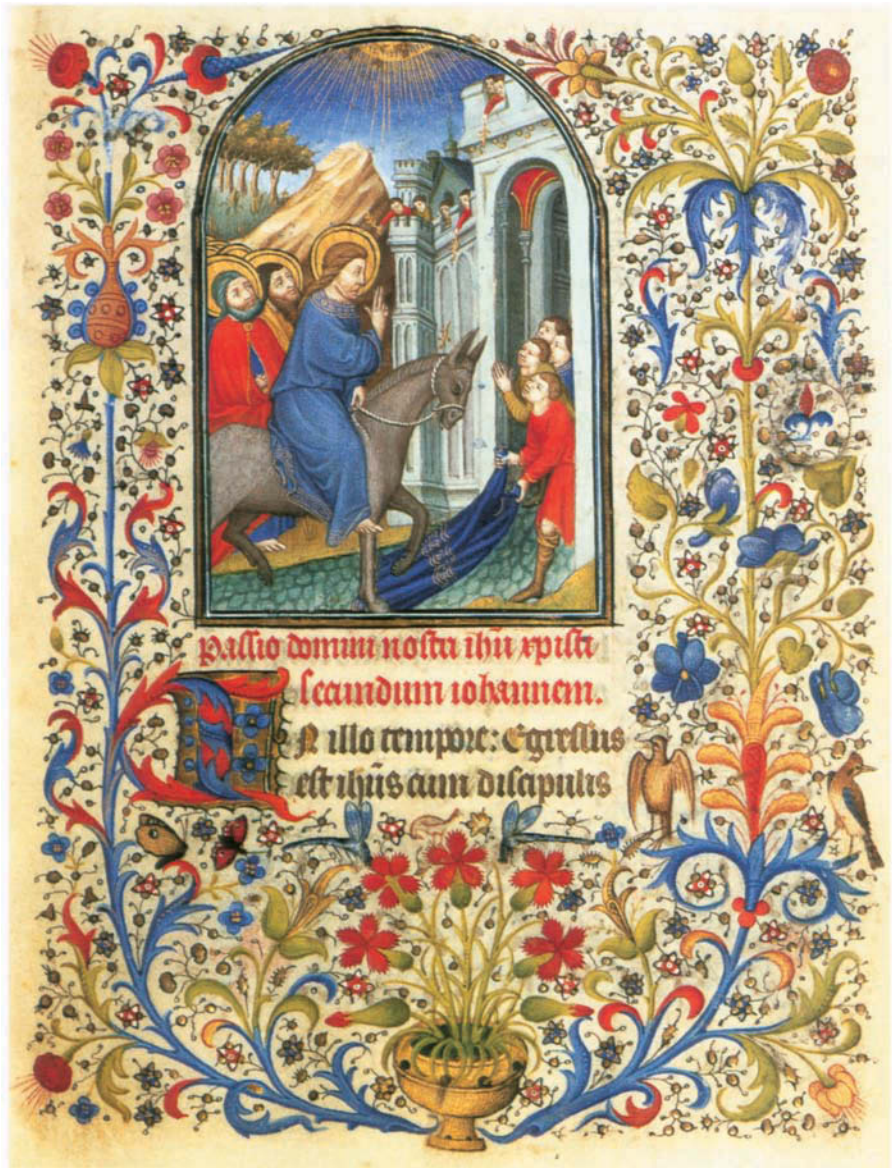 Passio domini nostri ihũ xpisti
secundum iohannem.
IN illo tempore: Egressus
est ihũs cum discipulis